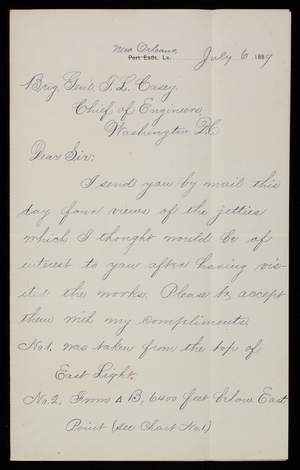 New Orleans,
Port Eads, La. July 6 1889
Brig. Gen'l. T. L. Casey.
Chief of Engineers,
Washington D.C.
Dear Sir:
I send you by mail this
day four views of the jetties
which I thought would be of
interest to you after having vis-
ited the works. Please to accept
them with my compliments.
No. 1. was taken from the top of
East Light.
No. 2. From △ B, 6400 feet below East
Point (see Chart No. 1)